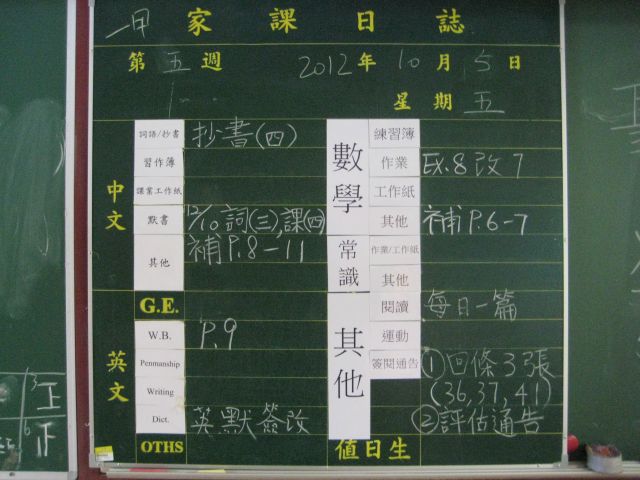 一甲 家課日誌
第五週 2012年10月5日
星期五
中文
詞語/抄書 抄書(四)
習作簿
課業工作紙
默書 12/10 詞(三),課(四)
其他 補P.8-11
英文
G.E.
W.B. P.9
Penmanship
Writing
Dict. 英默簽改
OTHS
數學
練習簿
作業 EX.8改7
工作紙
其他 補P.6-7
常識
作業/工作紙
其他
其他
閱讀 每日一篇
運動
簽閱通告 ①回條3張
(36,37,41)
②評估通告
值日生